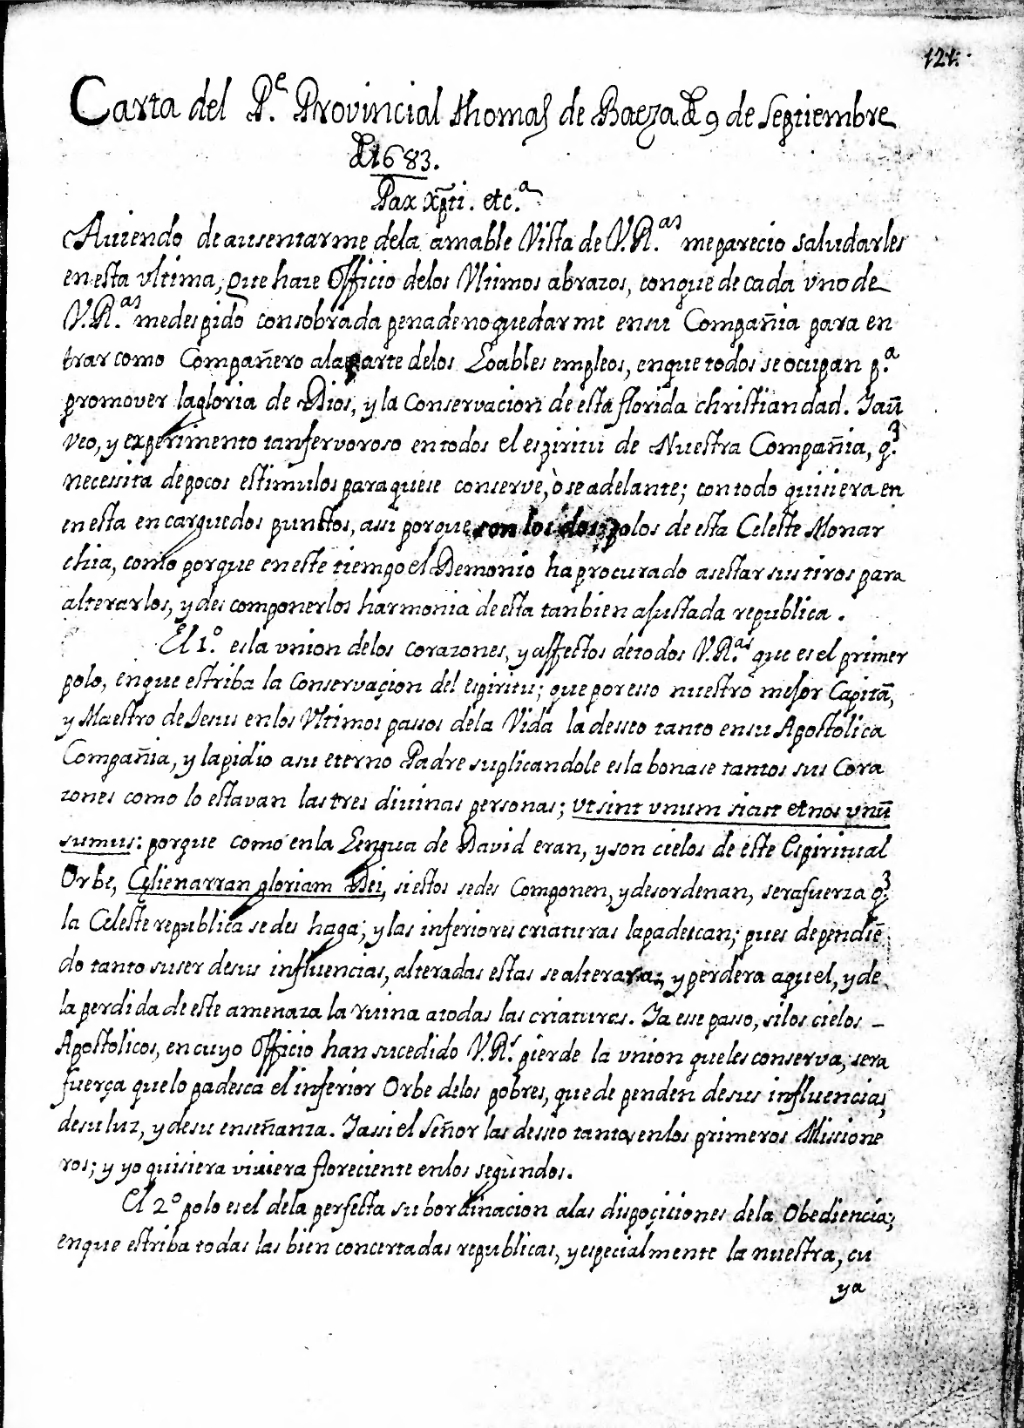 121.
Carta del P.e Provincial thomas de Baeza de 9 de septiembre
de 1683.
Pax xp̃ti. etc.a
Auiendo de ausentarme dela amable Vista de V.R.as me parecio saludarles
en esta vltima, que haze Officio delos Vltimos abrazos, conque de cada vno de
V.R.as me despido con sobrada pena de no quedarme en su Compañia para en
trar como Compañero ala parte delos Loables empleos, en que todos se ocupan p.a
promover la gloria de Dios, y la Conservacion de esta florida christiandad. Iaũ
veo, y experimento tan fervoroso en todos el espiritu de Nuestra Compañia, q.e
necessita de pocos estimulos para que se conserve, ò se adelante; con todo quisiera en
en esta encargue dos punctos, assi porque son los dos polos de esta Celeste Monar
chia, como porque en este tiempo el Demonio ha procurado asestar sus tiros para
alterarlos, y descomponerlos harmonia de esta tan bien ajustada republica.
El 1.o es la vnion delos corazones, y affectos de todos V.R.as que es el primer
polo, en que estriba la Conservaçion del espiritu; que por esso nuestro mejor Capitã,
y Maestro de Jesus en los Vltimos passos dela Vida la desseo tanto en su Apostolica
Compañia, y la pidio a su eterno Padre suplicandole eslabonase tantos sus Cora
zones como lo estavan las tres diuinas personas; vt sint vnum sicut et nos vnũ
sumus: porque como en la Lengua de David eran, y son cielos de este Espiritual
Orbe, Cęli enarran gloriam Dei, si estos se des Componen, y desordenan, sera fuerza q.e
la Celeste republica se des haga; y las inferiores criaturas la padescan; pues dependiẽ
do tanto su ser de sus influencias, alteradas estas se alterara; y perdera aquel, y de
la perdida de este amenaza la ruina a todas las criaturas. Ia esse passo, si los cielos –
Apostolicos, en cuyo Officio han sucedido V.R.s pierde la vnion que les conserva, sera
fuerça que lo padesca el inferior Orbe delos pobres, que de penden de sus influencias,
de su luz, y de su enseñanza. Iassi el Señor las desseo tantas en los primeros Missione
ros; y yo quisiera viuiera floreciente en los segundos.
El 2.o polo es el dela perfecta subordinacion a las dispoçiciones dela Obediencia;
en que estriba todas las bien concertadas republicas, y especialmente la nuestra, cu
ya